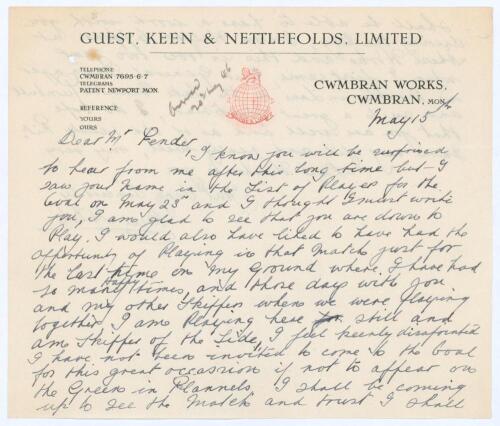 GUEST, KEEN & NETTLEFOLDS, LIMITED
TELEPHONE
CWMBRAN 7695·6·7
TELEGRAMS
PATENT NEWPORT MON.
REFERENCE
YOURS
OURS
CWMBRAN WORKS,
CWMBRAN, MON.
May 15th
Dear Mr Pender
I know you will be surprised
to hear from me after this long time but I
saw your name in the List of Player for the
Oval on May 23rd and I thought I must write
you, I am glad to see that you are down to
Play. I would also have liked to have had the
opportunity of Playing in that Match just for
the last time on My Ground where I have had
so many Happy times, and those days with you
and my other Skippers when we were Playing
together. I am Playing here still and
am Skipper of the Side, I feel keenly disapointed
I have not been invited to come to the Oval
for this great occassion if not to appear on
the Green in Flannels I shall be coming
up to see the Match and trust I shall